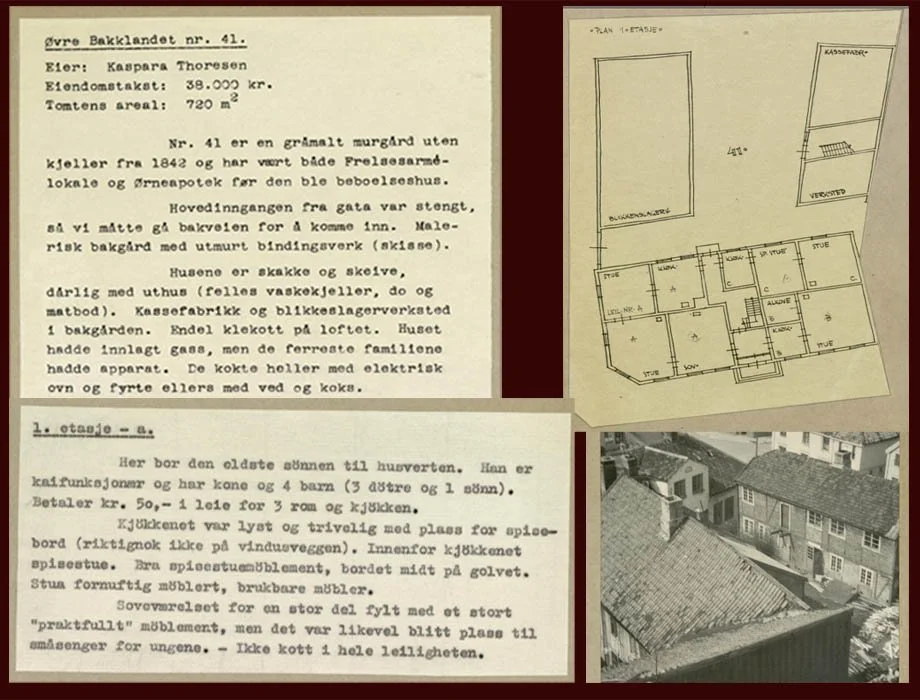 Øvre Bakklandet nr. 41.
Eier: Kaspara Thoresen
Eiendomstakst: 38.000 kr.
Tomtens areal: 720 m²
Nr. 41 er en gråmalt murgård uten
kjeller fra 1842 og har vært både Frelsesarmé-
lokale og Ørneapotek før den ble beboelseshus.
Hovedinngangen fra gata var stengt,
så vi måtte gå bakveien for å komme inn. Male-
risk bakgård med utmurt bindingsverk (skisse).
Husene er skakke og skeive,
dårlig med uthus (felles vaskekjeller, do og
matbod). Kassefabrikk og blikkeslagerverksted
i bakgården. Endel klekott på loftet. Huset
hadde innlagt gass, men de ferreste familiene
hadde apparat. De kokte heller med elektrisk
ovn og fyrte ellers med ved og koks.
1. etasje - a.
Her bor den eldste sönnen til husverten. Han er
kaifunksjonær og har kone og 4 barn (3 dötre og 1 sönn).
Betaler kr. 50,- i leie for 3 rom og kjökken.
Kjökkenet var lyst og trivelig med plass for spise-
bord (riktignok ikke på vindusveggen). Innenfor kjökkenet
spisestue. Bra spisestuemöblement, bordet midt på golvet.
Stua fornuftig möblert, brukbare möbler.
Soveværelset for en stor del fylt med et stort
"praktfullt" möblement, men det var likevel blitt plass til
småsenger for ungene. - Ikke kott i hele leiligheten.
PLAN 1 ETASJE
KASSEFABR.
41
VERKSTED
BLIKKENSLAGERV.
STUE
KJØK.
KJØK.
SP. STUE
STUE
A
C
C
C
LEIL. NR. A
ALKOVE
B
B
A
A
KJØK.
B
STUE
STUE
SOV.